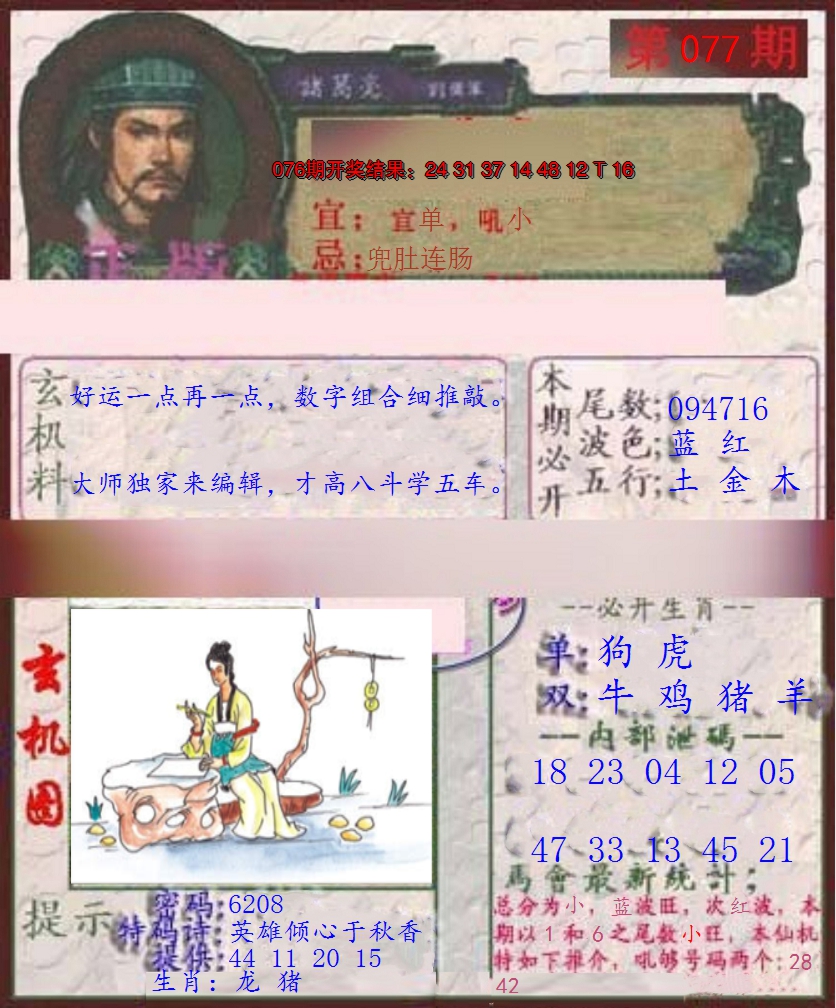 第 077 期
諸葛亮
076期开奖结果：24 31 37 14 48 12 T 16
宜：宜单，吼小
忌：兜肚连肠
正版
玄机料
好运一点再一点，数字组合细推敲。
大师独家来编辑，才高八斗学五车。
本期必开
尾数;094716
波色;蓝 红
五行;土 金 木
--必开生肖--
单:狗 虎
双:牛 鸡 猪 羊
--内部泄碼--
18 23 04 12 05
47 33 13 45 21
玄机图
馬會最新统计;
总分为小，蓝波旺，次红波，本
期以1和6之尾数小旺，本仙机
特如下推介，吼够号码两个:28
42
提示
密码:6208
特码诗:英雄倾心于秋香
提供:44 11 20 15
生肖：龙 猪